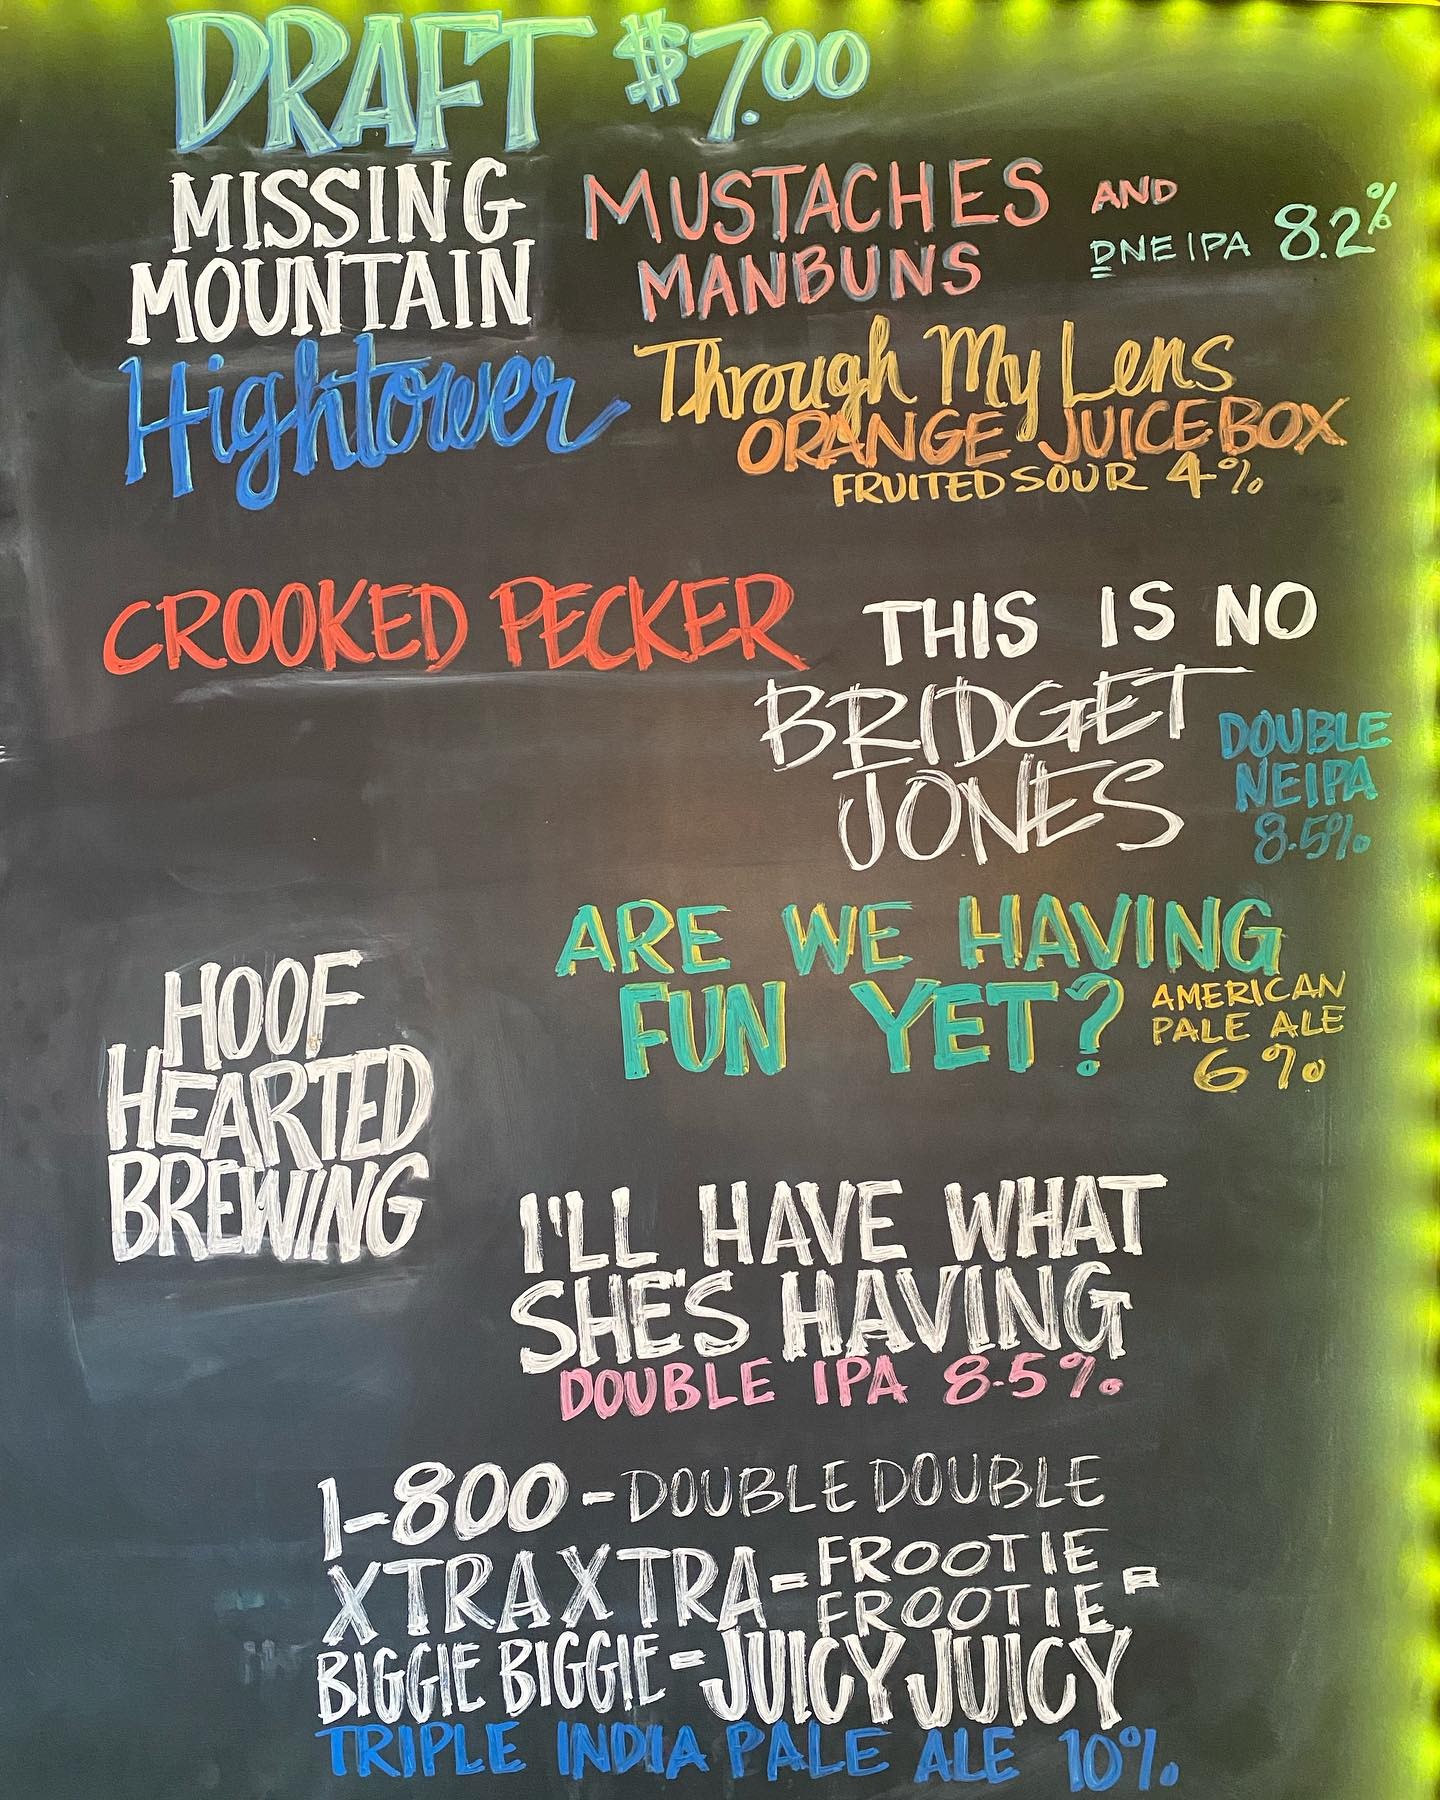 DRAFT $7.00
MISSING MOUNTAIN
MUSTACHES AND
MANBUNS
DNEIPA 8.2%
Hightower
Through My Lens
ORANGE JUICE BOX
FRUITED SOUR 4%
CROOKED PECKER
THIS IS NO
BRIDGET
JONES
DOUBLE
NEIPA
8.5%
HOOF
HEARTED
BREWING
ARE WE HAVING
FUN YET?
AMERICAN
PALE ALE
6%
I'LL HAVE WHAT
SHE'S HAVING
DOUBLE IPA 8.5%
1-800-DOUBLE DOUBLE
XTRA XTRA-FROOTIE
FROOTIE-
BIGGIE BIGGIE-JUICY JUICY
TRIPLE INDIA PALE ALE 10%